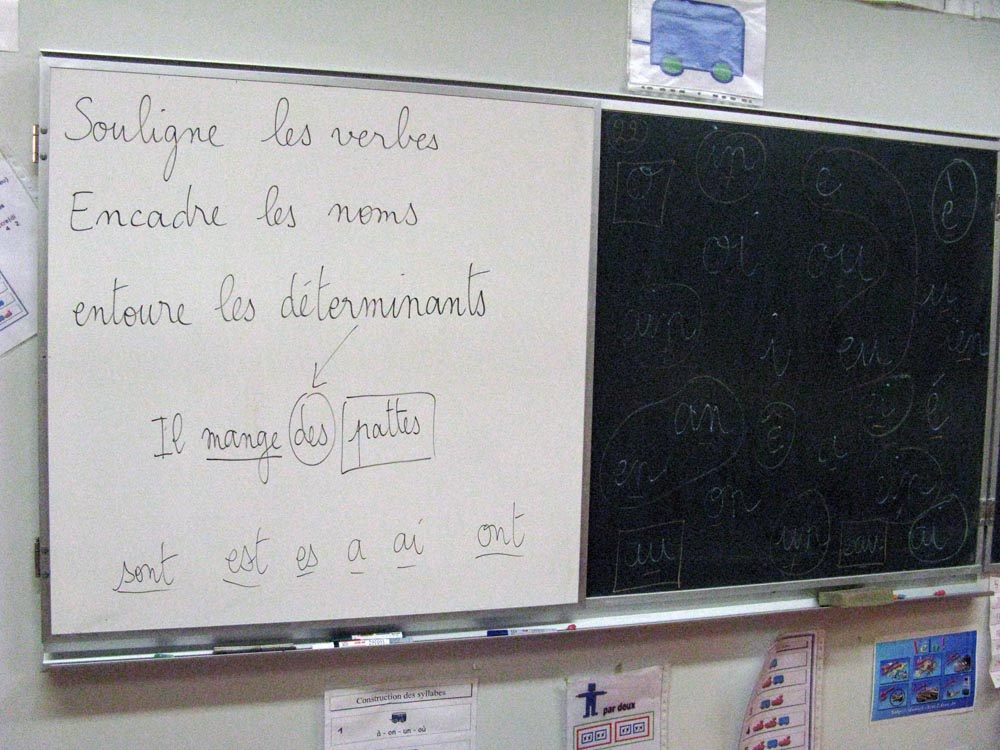 Souligne les verbes
Encadre les noms
entoure les déterminants
Il mange des pattes
sont est es a ai ont
22
o in e è
oi ou
un i eu ien
an é
en on
au un eau ai
Construction des syllabes
1
à - on - un - où
par deux